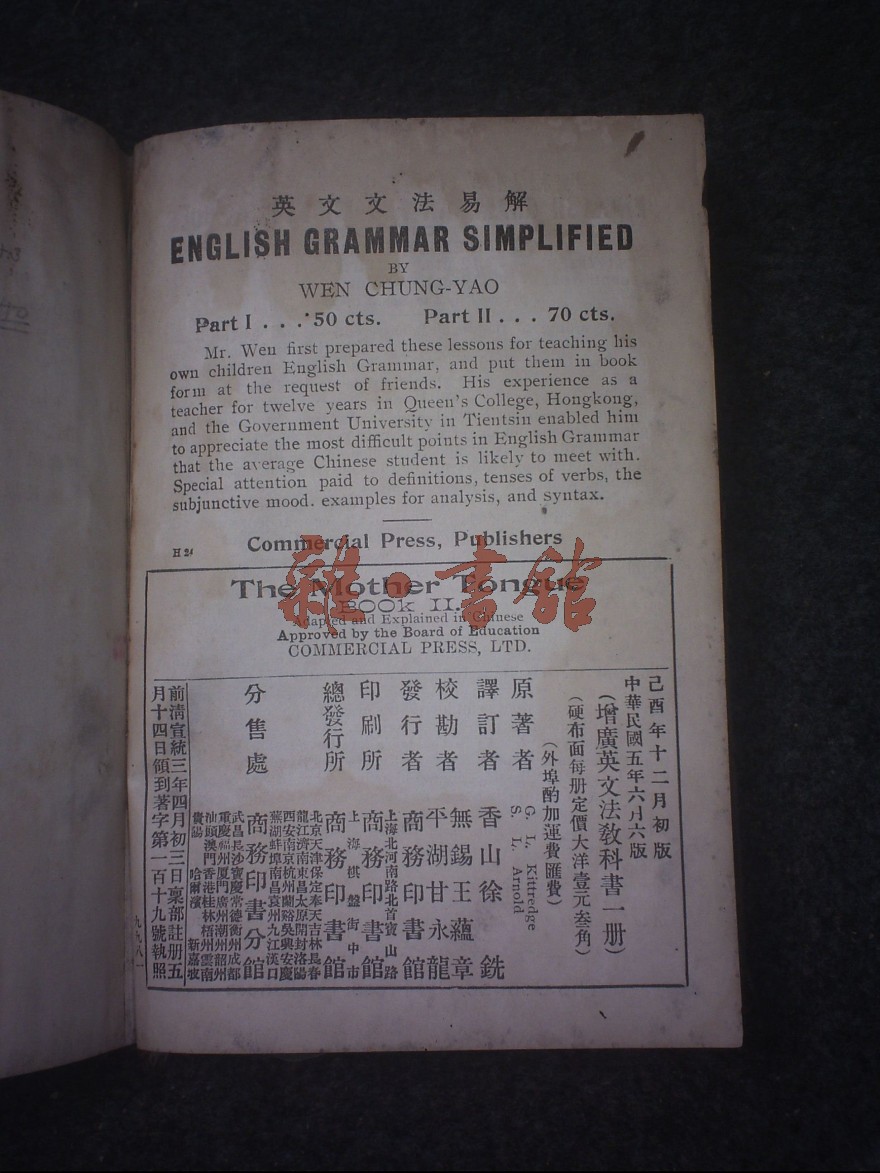 英文文法易解
ENGLISH GRAMMAR SIMPLIFIED
BY
WEN CHUNG-YAO
Part I . . . 50 cts. Part II . . . 70 cts.
Mr. Wen first prepared these lessons for teaching his
own children English Grammar, and put them in book
form at the request of friends. His experience as a
teacher for twelve years in Queen's College, Hongkong,
and the Government University in Tientsin enabled him
to appreciate the most difficult points in English Grammar
that the average Chinese student is likely to meet with.
Special attention paid to definitions, tenses of verbs, the
subjunctive mood. examples for analysis, and syntax.
H 24
Commercial Press, Publishers
雜·書館
The Mother Tongue
BOOK II.
Adapted and Explained in Chinese
Approved by the Board of Education
COMMERCIAL PRESS, LTD.
己酉年十二月初版
中華民國五年六月六版
(增廣英文法教科書一册)
(硬布面每册定價大洋壹元叁角)
(外埠酌加運費匯費)
原著者 G. L. Kittredge
S. L. Arnold
譯訂者 香山徐銑
校勘者 無錫王蘊章
平湖甘永龍
發行者 商務印書館
印刷所 上海北河南路北首寶山路
商務印書館
總發行所 上海棋盤街中市
商務印書館
分售處 北京天津保定奉天吉林長春
龍江濟南東昌太原開封洛陽
西安南京杭州蘭谿吳興安慶
蕪湖蚌埠南昌袁州九江漢口
商務印書分館
武昌長沙寶慶常德衡州成都
重慶福州廈門廣州潮州韶州
汕頭澳門香港桂林梧州雲南
貴陽 哈爾濱 新嘉坡
前清宣統三年四月初三日稟部註册五
月十四日領到著字第一百十九號執照